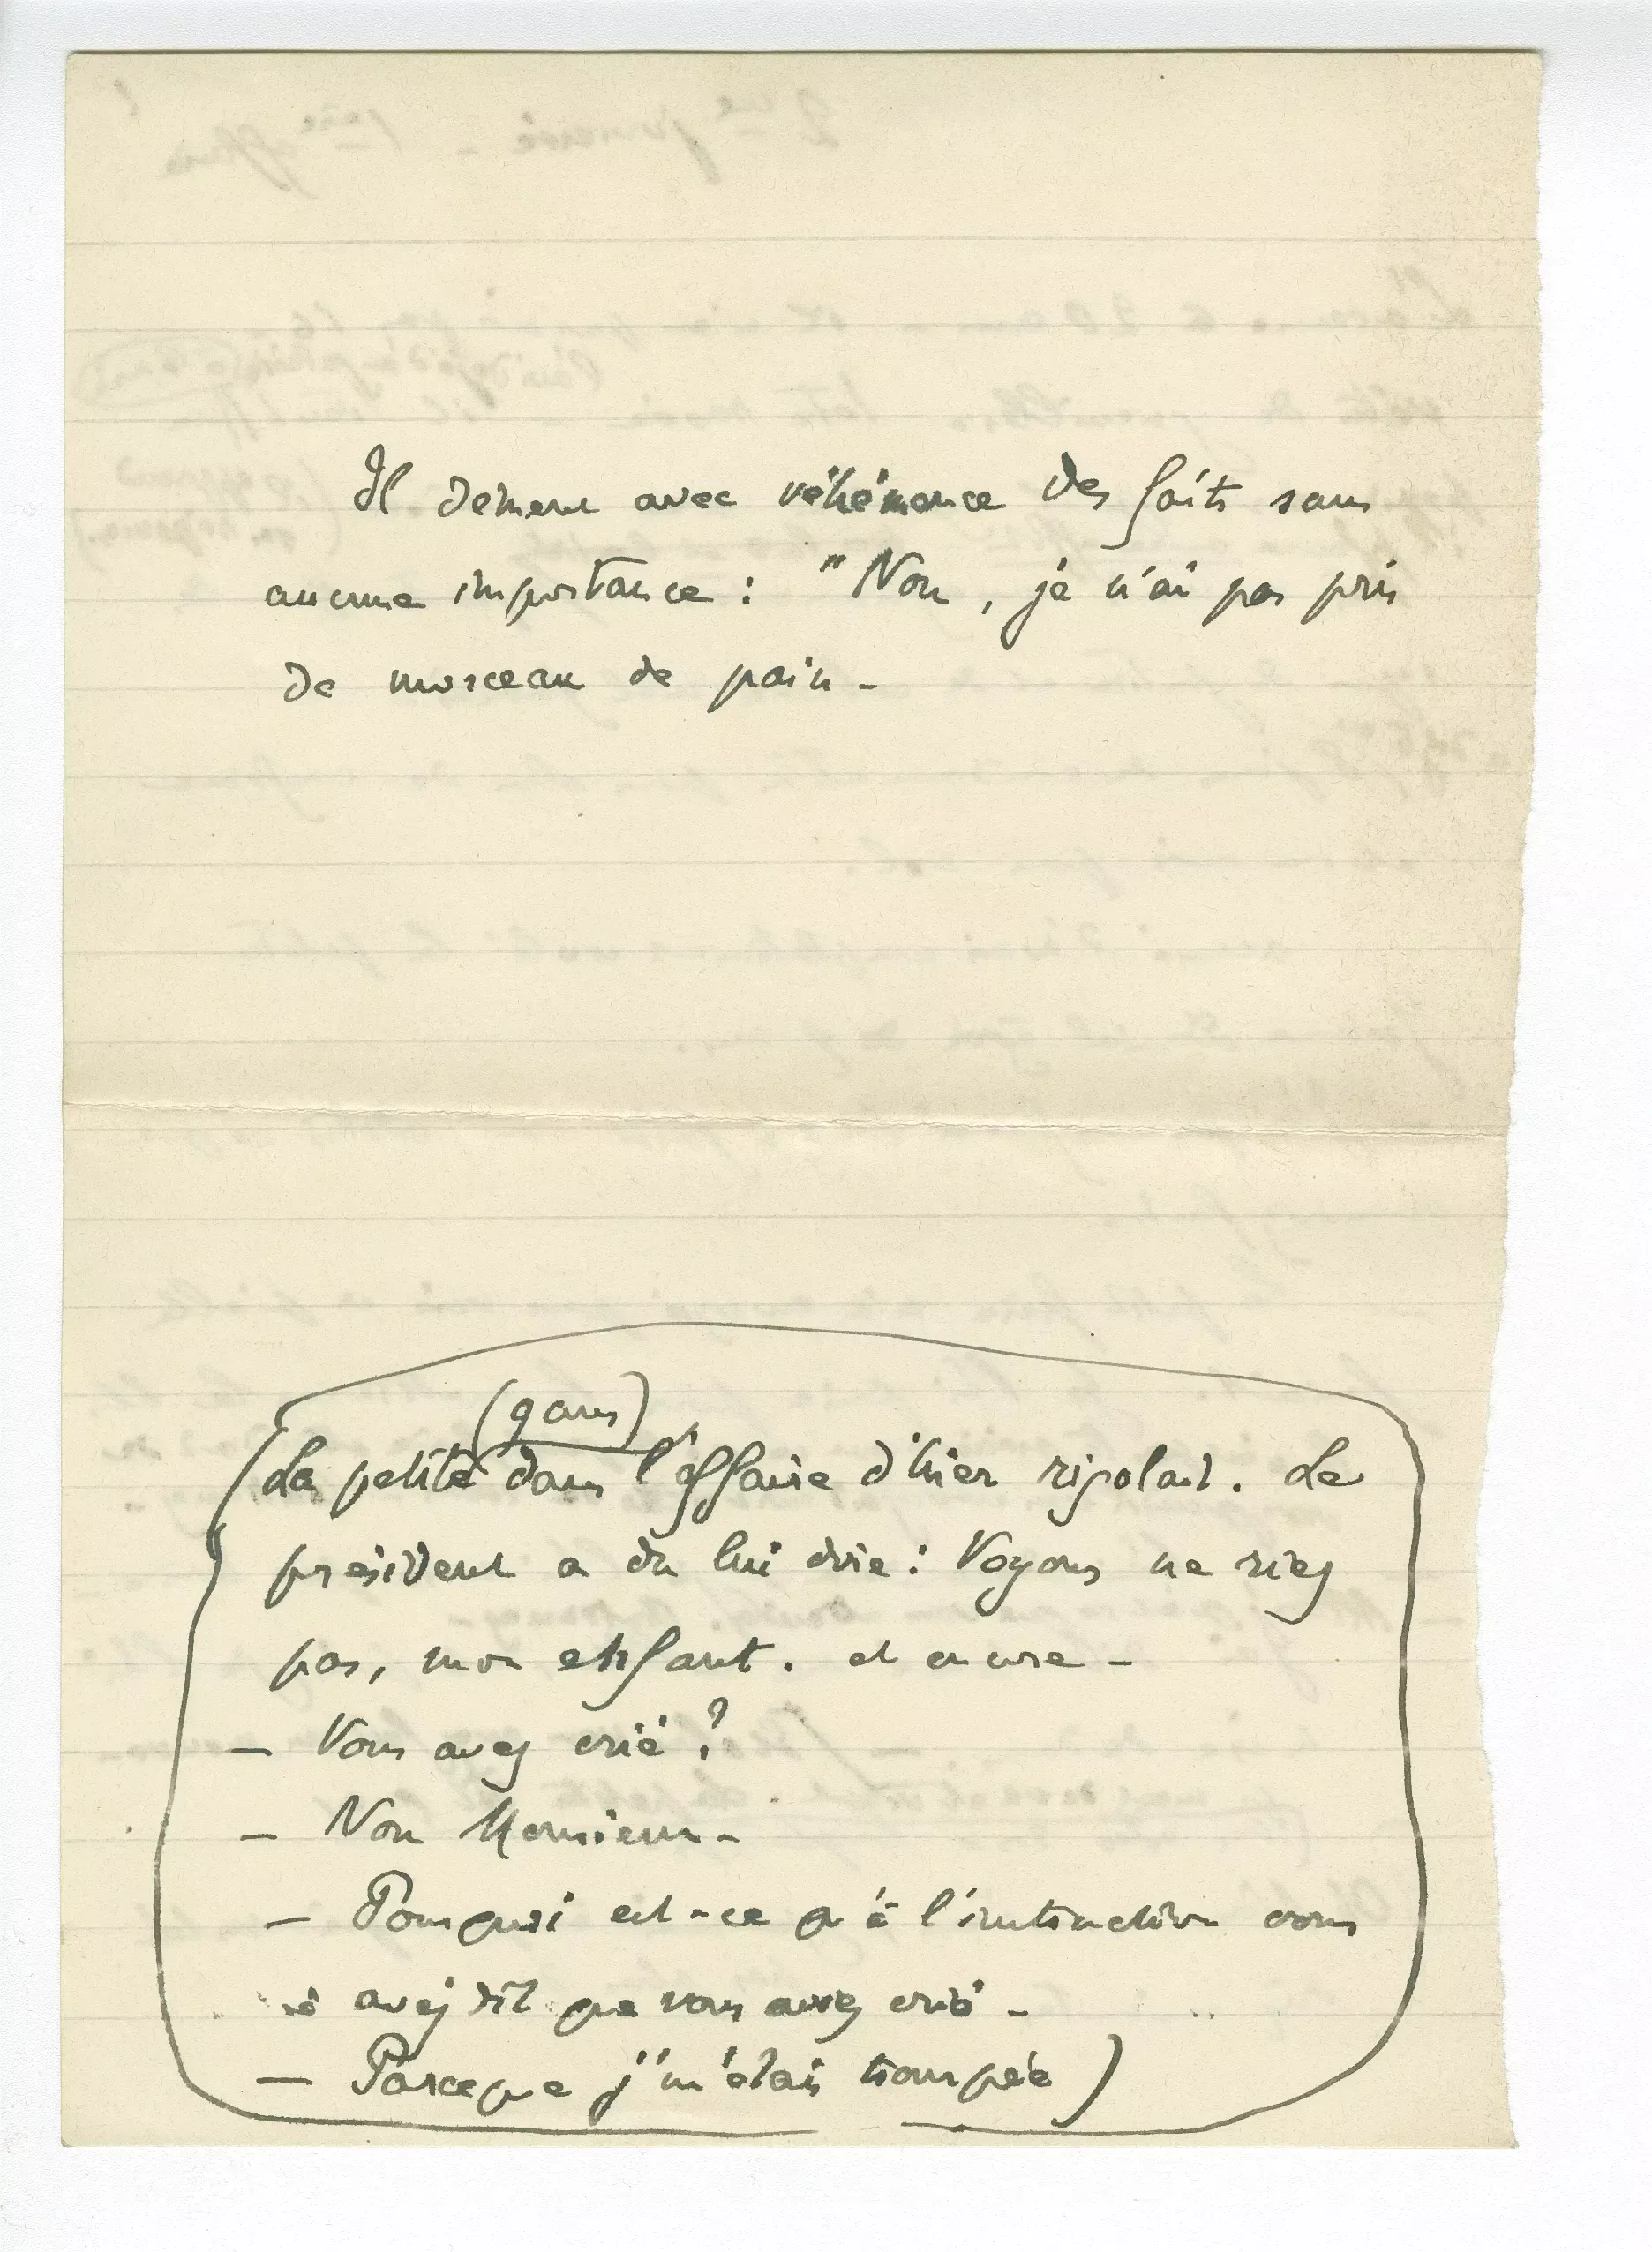 Il dément avec véhémence des faits sans
aucune importance : "Non, je n'ai pas pris
de morceau de pain -
(9 ans)
(La petite dans l'affaire d'hier rigolait. Le
président a du lui dire : Voyons ne riez
pas, mon enfant. et encore -
- Vous avez crié ?
- Non Monsieur -
- Pourquoi est-ce qu'à l'instruction vous
avez dit que vous avez crié -
- Parceque j'm'étais trompée)